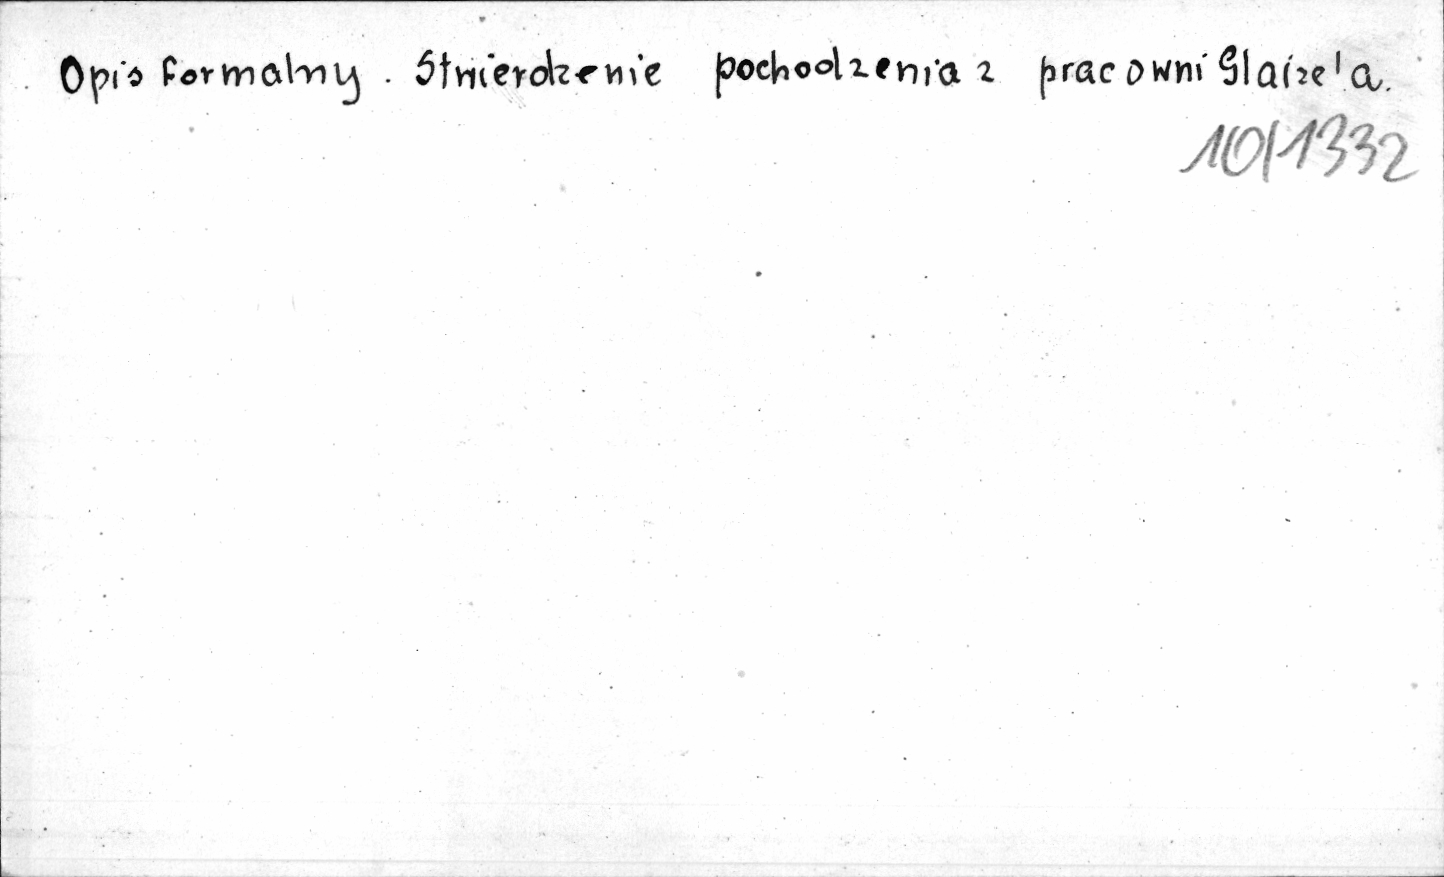 Opis formalny. Stwierdzenie pochodzenia z pracowni Glaize'a.
10/1332